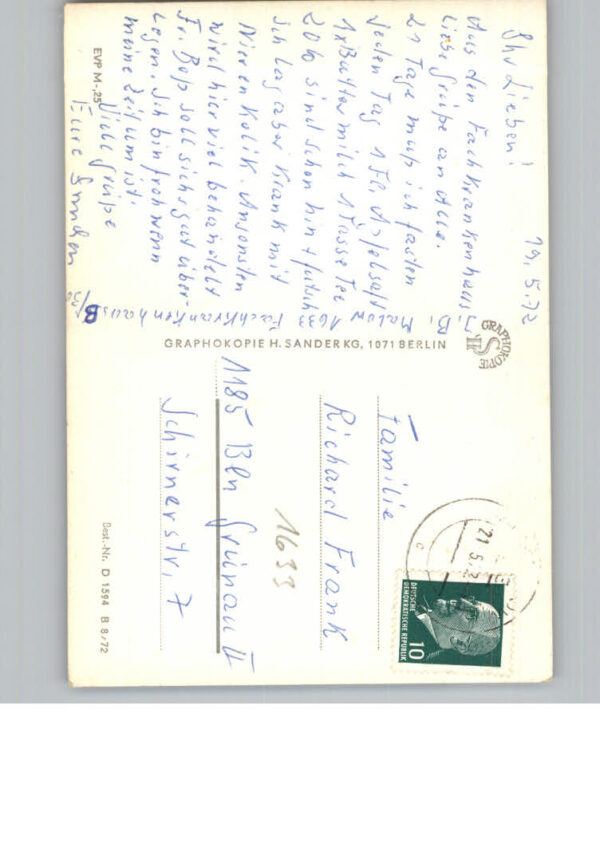 19.5.72
Ihr Lieben!
Aus dem Fachkrankenhaus
Liebe Grüße an Alle.
21 Tage muß ich fasten
jeden Tag 1 Fl. Apfelsaft
1x Buttermilch 1 Tasse Tee
20 ℔ sind schon hin + futsch
ich lag aber krank mit
Nierenkolik. Ansonsten
wird hier viel behandelt
Fr. Boß soll sichs gut über-
legen. Ich bin froh wenn
meine Zeit um ist.
Viele Grüße
Eure
J. B. Malow 1633 Fachkrankenhaus B
EVP M -,25
GRAPHOKOPIE H. SANDER KG, 1071 BERLIN
GRAPHOKOPIE
Familie
Richard Frank
1633
1185 Bln Grünau II
Schirnerstr. 7
Best.-Nr. D 1594 B 8/72
21.5.
DEUTSCHE
DEMOKRATISCHE REPUBLIK
10